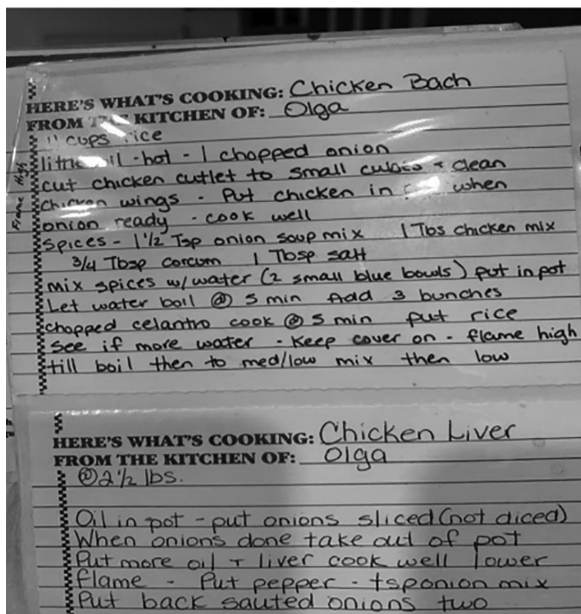 HERE'S WHAT'S COOKING: Chicken Bach
FROM THE KITCHEN OF: Olga
cups rice
oil - hot - 1 chopped onion
cut chicken cutlet to small + clean
chicken wings - Put chicken in when
onion ready - cook well
Spices - 1 1/2 Tsp onion soup mix 1 Tbs chicken mix
3/4 Tbsp corcum 1 Tbsp salt
mix spices w/water (2 small blue bowls) put in pot
Let water boil @ 5 min Add 3 bunches
chopped celantro cook @ 5 min put rice
See if more water - Keep cover on - flame high
till boil then to med/low mix then low
Flame High
HERE'S WHAT'S COOKING: Chicken Liver
FROM THE KITCHEN OF: Olga
@ 2 1/2 lbs.
Oil in pot - put onions sliced (not diced)
When onions done take out of pot
Put more oil + liver cook well lower
flame - Put pepper - tsp onion mix
Put back sauted onions two